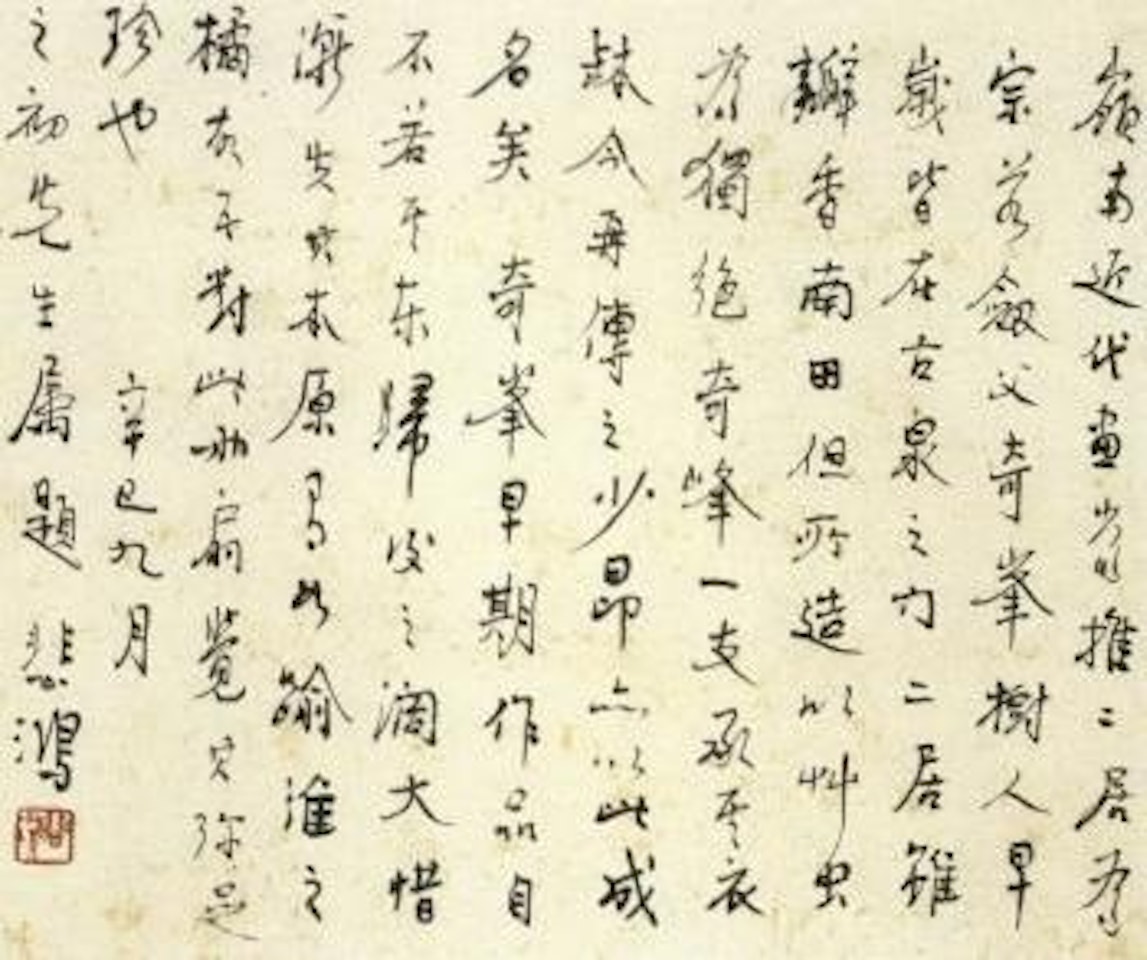 嶺南近代畫派推二居為
宗若劍父奇峯樹人早
歲皆在古泉之門二居雖
瓣香南田但所造以艸虫
為獨絕奇峰一支承其衣
缽今再傳之少昂亦以此成
名矣奇峯早期作品自
不若其東歸後之濶大惜
漸失其本原有如踰淮之
橘友人對此冊扇覺其弥足
珍也 辛巳九月
之初先生属題 悲鴻